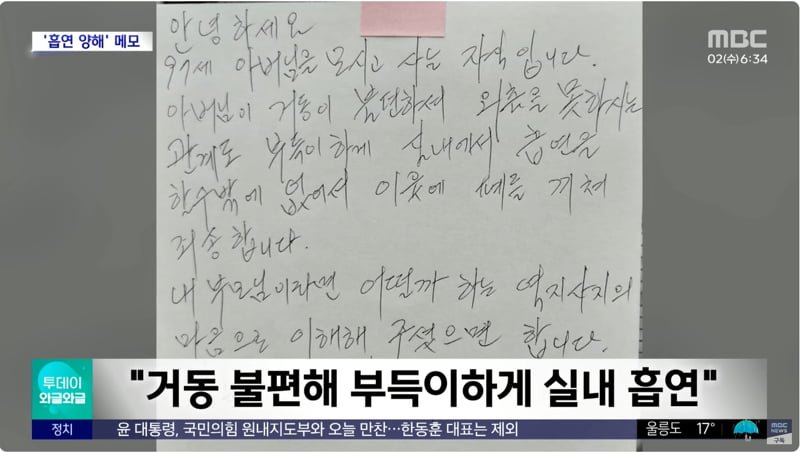 '흡연 양해' 메모
MBC
02(수) 6:34
안녕하세요
97세 아버님을 모시고 사는 자식입니다.
아버님이 거동이 불편하셔 외출을 못하시는
관계로 부득이하게 실내에서 흡연을
할수밖에 없어서 이웃에 폐를 끼쳐
죄송합니다.
내 부모님이라면 어떨까 하는 역지사지의
마음으로 이해해 주셨으면 합니다.
투데이
와글와글
"거동 불편해 부득이하게 실내 흡연"
정치
윤 대통령, 국민의힘 원내지도부와 오늘 만찬…한동훈 대표는 제외
울릉도 17°
MBC
NEWS
구독